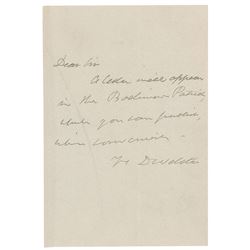 Dear Sir
A letter will appear
in the Baltimore Patriot
which you can
when convenient
D Webster